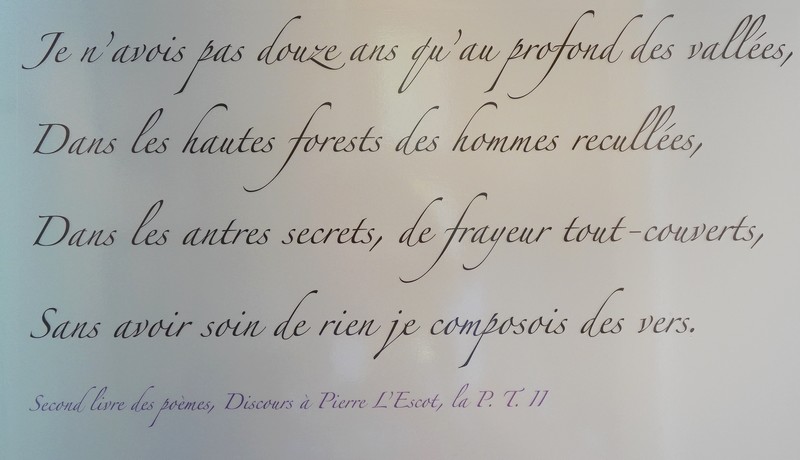 Je n'avois pas douze ans qu'au profond des vallées,
Dans les hautes forests des hommes recullées,
Dans les antres secrets, de frayeur tout-couverts,
Sans avoir soin de rien je composois des vers.
Second livre des poèmes, Discours à Pierre L'Escot, la P. T. II